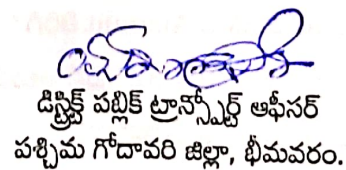 డిస్ట్రిక్ట్ పబ్లిక్ ట్రాన్స్పోర్ట్ ఆఫీసర్
పశ్చిమ గోదావరి జిల్లా, భీమవరం.